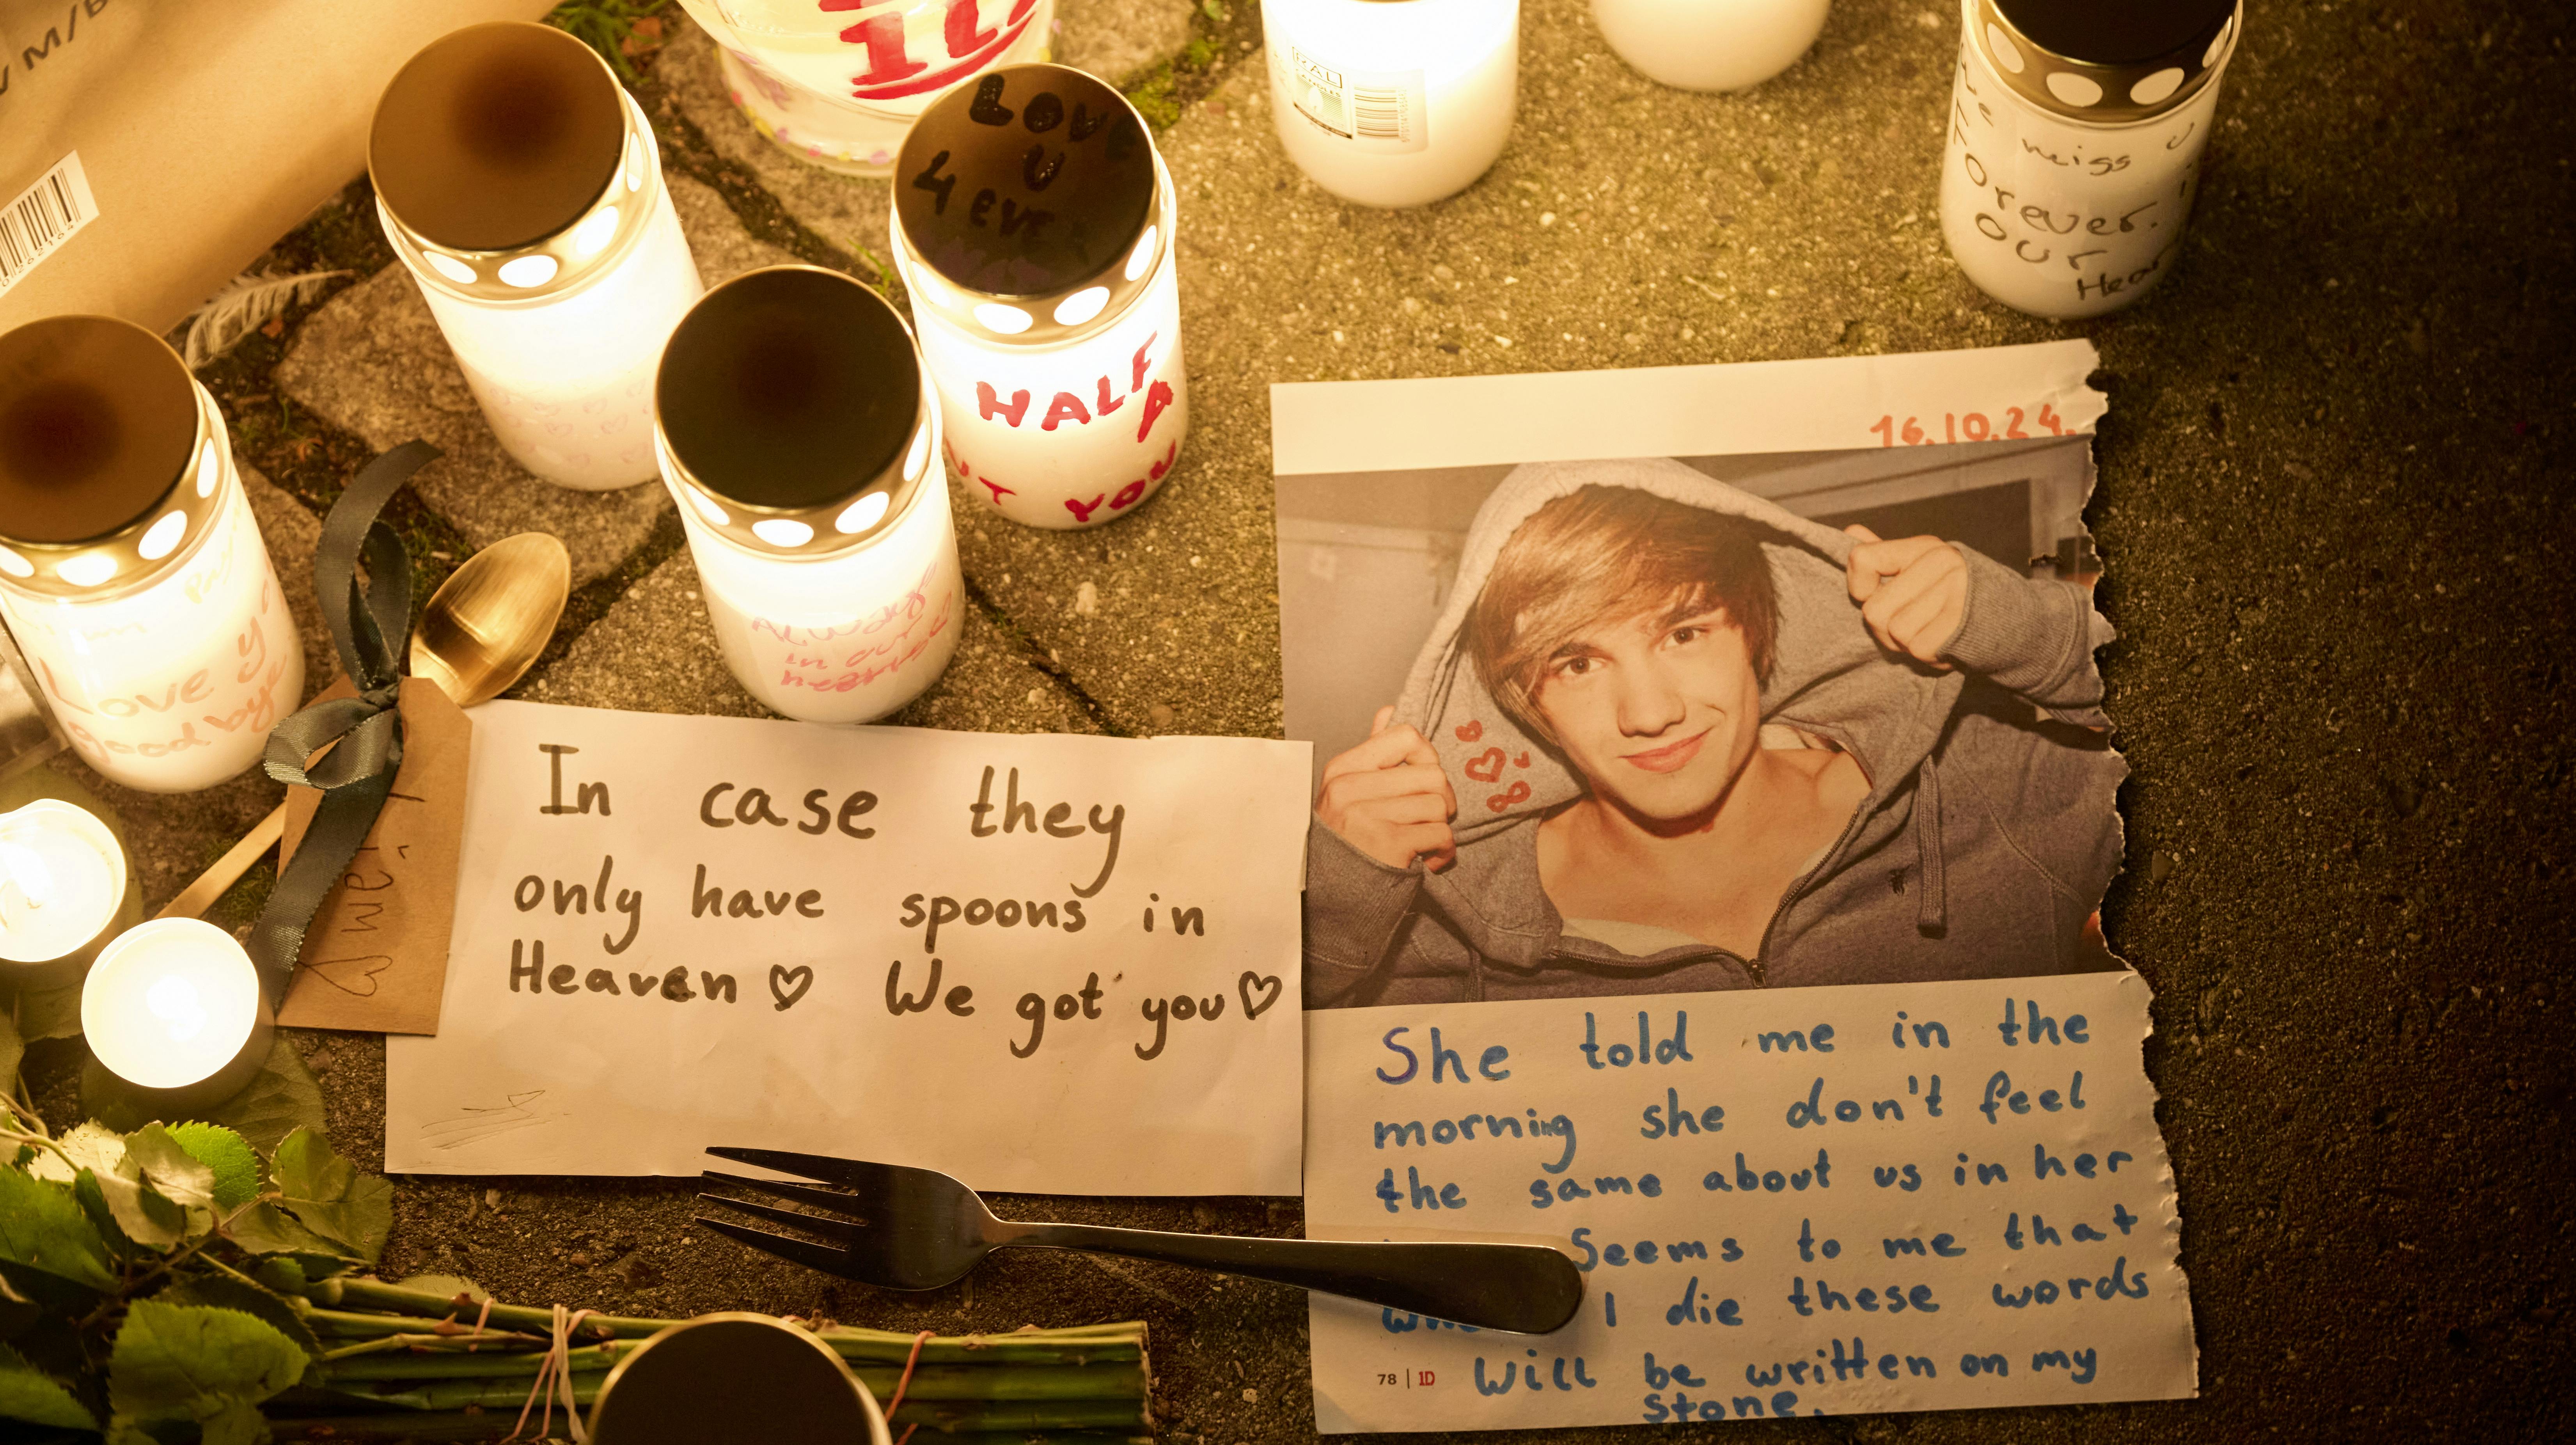 M/B
1D
LOVE
U
4 EVE
HALF
A
YOU
RAL
miss u
Forever.
our
Hear
Love
goodbye
Always
in our
hearts
16.10.24.
In case they
only have spoons in
Heaven ♡ We got you ♡
She told me in the
morning she don't feel
the same about us in her
Seems to me that
I die these words
78 | 1D
Will be written on my
stone.